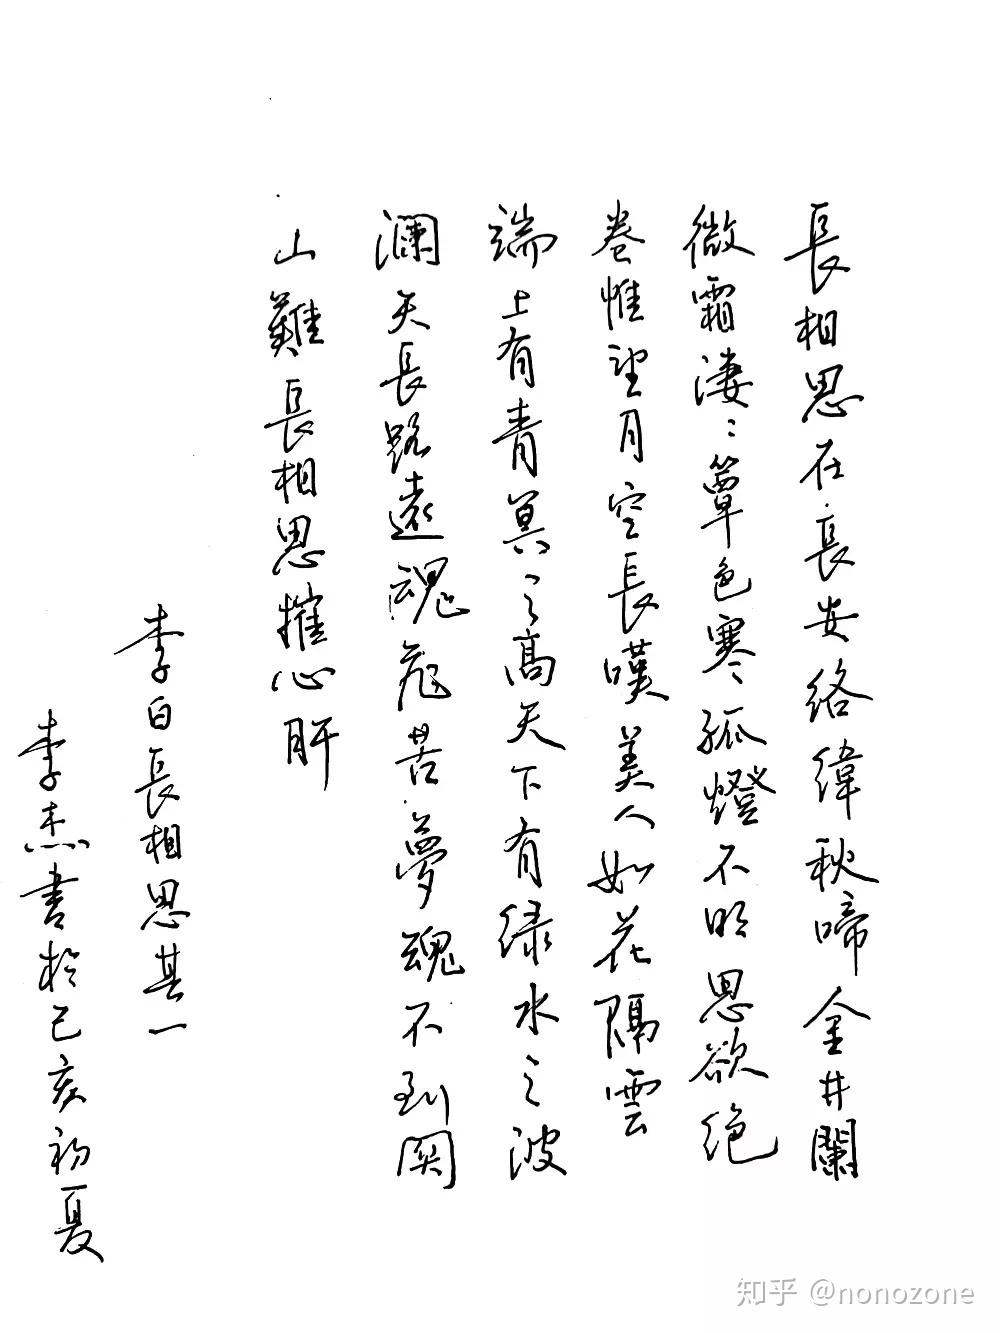 長相思在長安絡緯秋啼金井闌
微霜淒〻簟色寒孤燈不明思欲絕
卷帷望月空長嘆美人如花隔雲
端上有青冥之高天下有綠水之波
瀾天長路遠魂飛苦夢魂不到関
山難長相思摧心肝
李白長相思其一
李杰書於己亥初夏
知乎 @nonozone